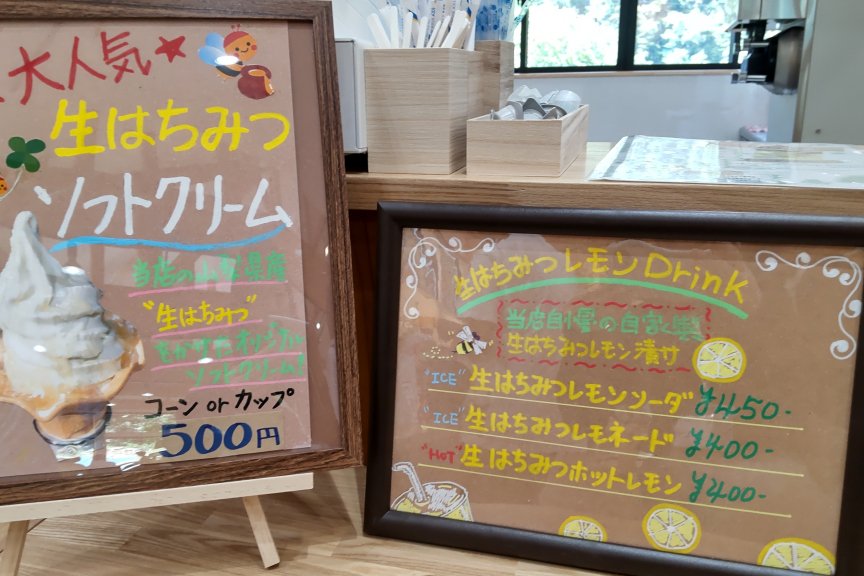 大人気★
生はちみつ
ソフトクリーム
当店の山梨県産
"生はちみつ"
をかけたオリジナル
ソフトクリーム!
コーン or カップ
500円
生はちみつレモン Drink
当店自慢の自家製
生はちみつレモン漬け
"ICE" 生はちみつレモンソーダ ¥450-
"ICE" 生はちみつレモネード ¥400-
"HOT" 生はちみつホットレモン ¥400-